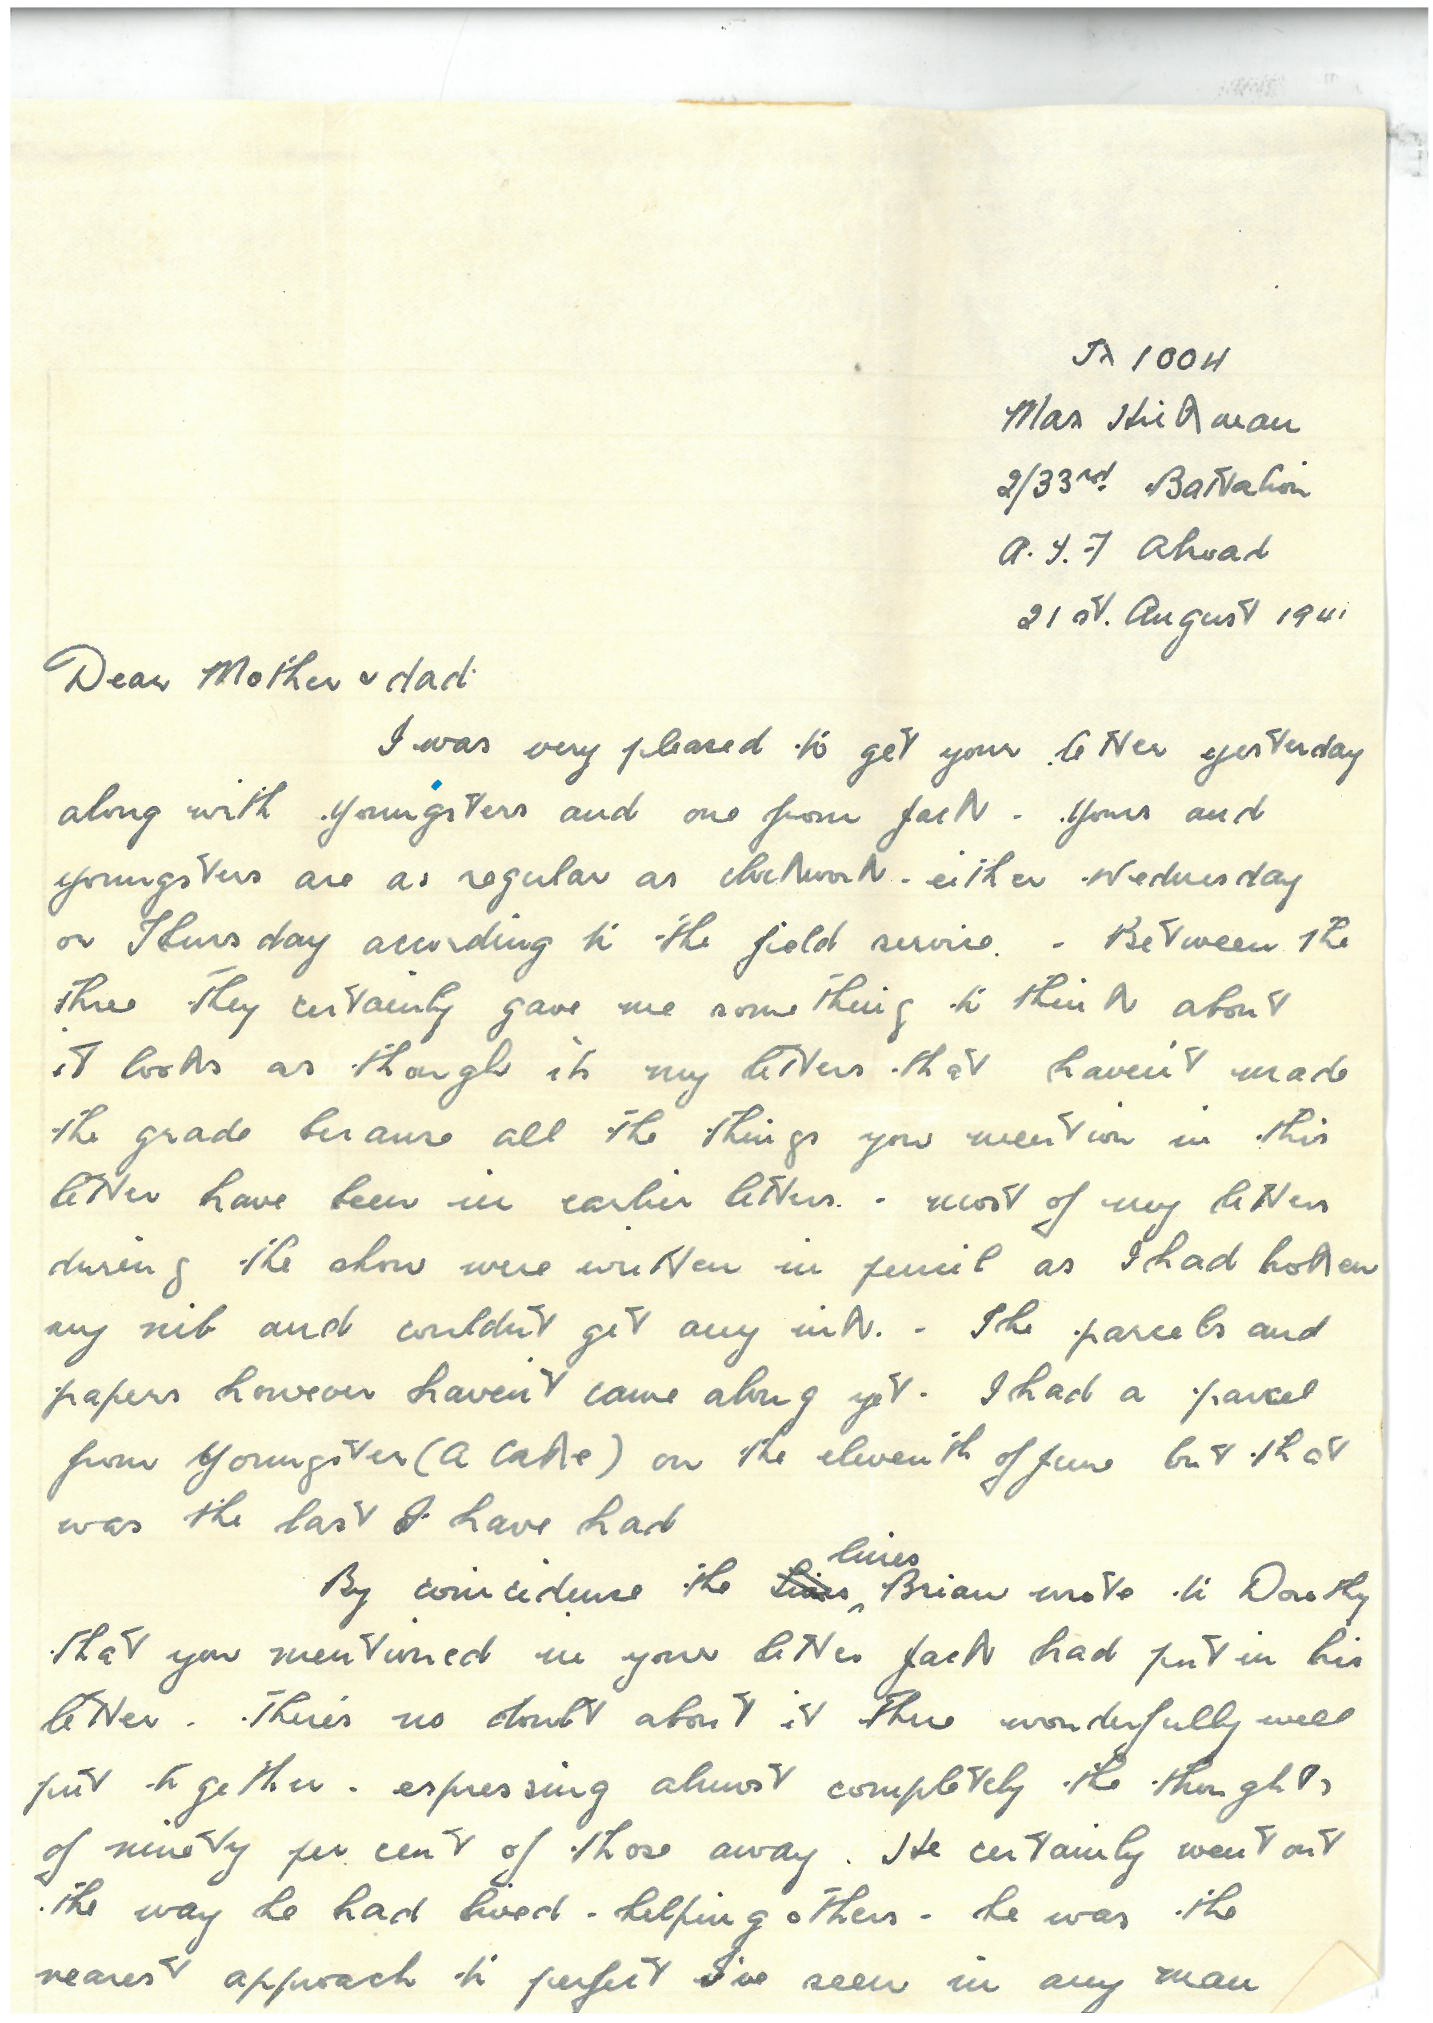 Tx 1004
Max Hickman
2/33rd. Battalion
A. I. F Abroad
21 st. August 1941
Dear Mother & dad
I was very pleased to get your letter yesterday
along with Youngsters and one from Jack - Yours and
youngsters are as regular as clockwork - either Wednesday
or Thursday according to the field service. - Between the
three they certainly gave me something to think about
it looks as though its my letters that haven't made
the grade because all the things you mention in this
letter have been in earlier letters. - most of my letters
during the show were written in pencil as I had broken
my nib and couldn't get any ink. - The parcels and
papers however haven't come along yet - I had a parcel
from Youngster (A Cake) on the eleventh of June but that
was the last I have had
By coincidence the lines Brian wrote to Dorothy
that you mentioned in your letter Jack had put in his
letter - there's no doubt about it there wonderfully well
put together - expressing almost completely the thoughts
of ninety per cent of those away. He certainly went out
the way he had lived - helping others - he was the
nearest approach to perfect I've seen in any man